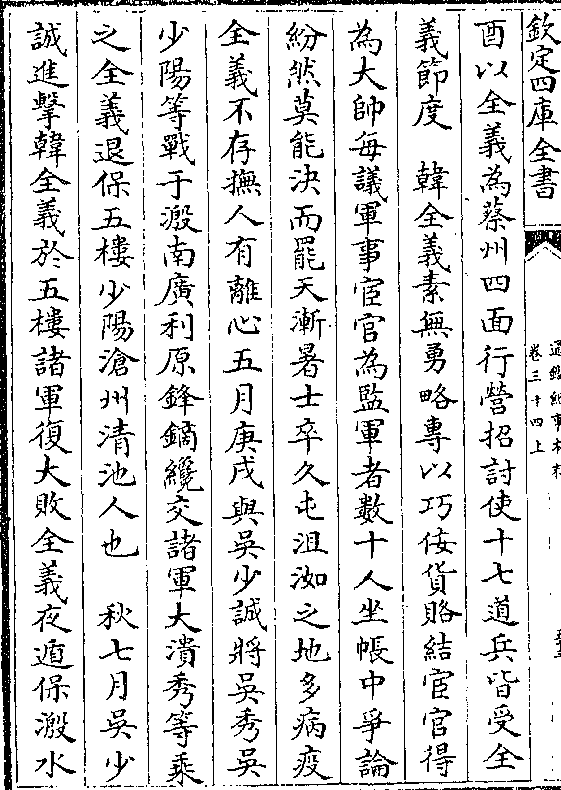 欽定四庫全書
通鑑紀事本末
卷三十四上
酉以全義為蔡州四面行營招討使十七道兵皆受全
義節度　韓全義素無勇略專以巧佞貨賂結宦官得
為大帥每議軍事宦官為監軍者數十人坐帳中爭論
紛然莫能決而罷天漸暑士卒久屯沮洳之地多病疫
全義不存撫人有離心五月庚戌與吳少誠將吳秀吳
少陽等戰于溵南廣利原鋒鏑纔交諸軍大潰秀等乘
之全義退保五樓少陽滄州清池人也　秋七月吳少
誠進擊韓全義於五樓諸軍復大敗全義夜遁保溵水